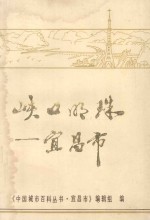 峡口明珠
—宜昌市
《中国城市百科丛书·宜昌市》编辑组 编